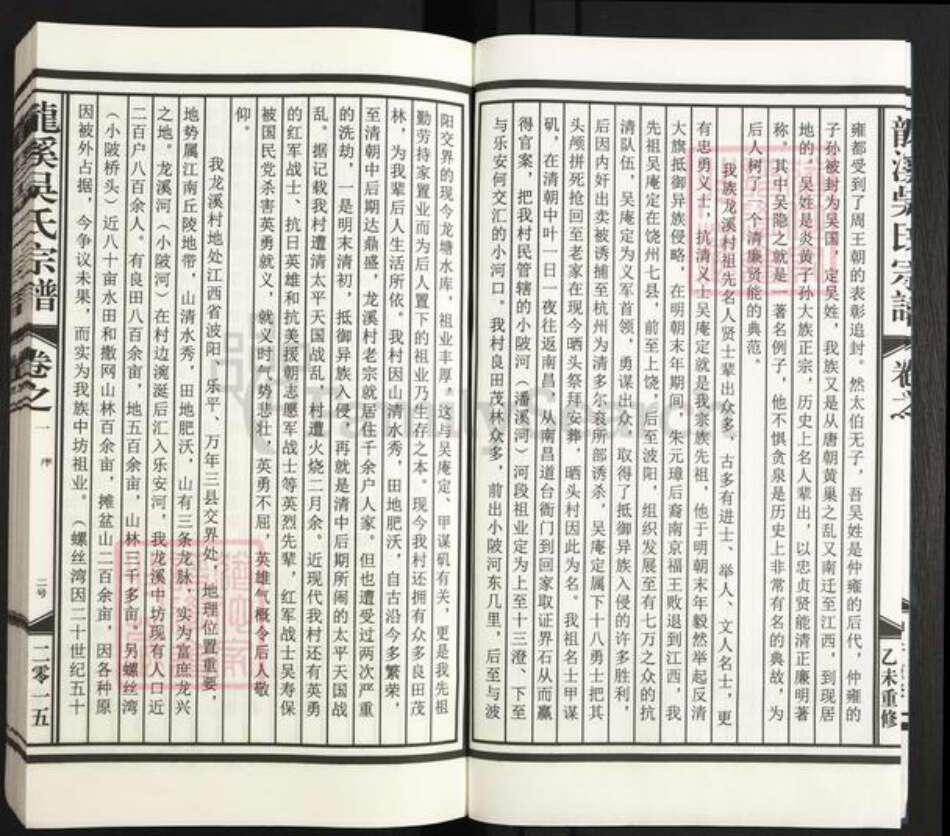 雍都受到了周王朝的表彰追封。然太伯无子，吾吴姓是仲雍的后代，仲雍的
子孙被封为吴国，定吴姓，我族又是从唐朝黄巢之乱又南迁至江西，到现居
地的。吴姓是炎黄子孙大族正宗，历史上名人辈出，以忠贞贤能清正廉明著
称，其中吴隐之就是一著名例子，他不惧贪泉是历史上非常有名的典故，为
后人树了一个清廉贤能的典范。
我族龙溪村祖先名人贤士辈出众多，古多有进士、举人、文人名士，更
有忠勇义士，抗清义士吴庵定就是我宗族先祖，他于明朝末年毅然举起反清
大旗抵御异族侵略，在明朝末年期间，朱元璋后裔南京福王败退到江西，我
先祖吴庵定在饶州七县，前至上饶，后至波阳，组织发展至有七万之众的抗
清队伍，吴庵定为义军首领，勇谋出众，取得了抵御异族入侵的许多胜利，
后因内奸出卖被诱捕至杭州为清多尔衮所部诱杀，吴庵定属下十八勇士把其
头颅拼死抢回至老家在现今晒头祭拜安葬，晒头村因此为名。我祖名士甲谋
矶，在清朝中叶一日一夜往返南昌，从南昌道台衙门到回家取证界石从而赢
得官案，把我村民管辖的小陂河（潘溪河）河段祖业定为上至十三澄、下至
与乐安何交汇的小河口。我村良田茂林众多，前出小陂河东几里，后至与波
龍溪吴氏宗譜
卷之
乙未重修
阳交界的现今龙塘水库，祖业丰厚，这与吴庵定、甲谋矶有关，更是我先祖
勤劳持家置业而为后人置下的祖业乃生存之本。现今我村还拥有众多良田茂
林，为我辈后人生活所依。我村因山清水秀，田地肥沃，自古沿今多繁荣，
至清朝中后期达鼎盛，龙溪村老宗就居住千余户人家。但也遭受过两次严重
的洗劫，一是明末清初，抵御异族入侵，再就是清中后期所闹的太平天国战
乱。据记载我村遭清太平天国战乱，村遭火烧二月余。近现代我村还有英勇
的红军战士、抗日英雄和抗美援朝志愿军战士等英烈先辈，红军战士吴寿保
被国民党杀害英勇就义，就义时气势悲壮，英勇不屈，英雄气概令后人敬
仰。
我龙溪村地处江西省波阳、乐平、万年三县交界处，地理位置重要，
地势属江南丘陵地带，山清水秀，田地肥沃，山有三条龙脉，实为富庶龙兴
之地。龙溪河（小陂河）在村边婉涎后汇入乐安河，我龙溪中坊现有人口近
二百户八百余人。有良田八百余亩，地五百余亩，山林三千多亩，另螺丝湾
（小陂桥头）近八十亩水田和撒网山林百余亩，摊盆山二百余亩，因各种原
因被外占据，今争议未果，而实为我族中坊祖业。（螺丝湾因二十世纪五十
龍溪吴氏宗譜
卷之一
序
二号
二零一五